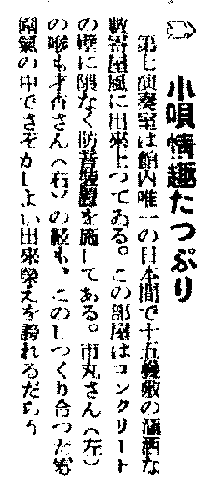 小唄情趣たつぷり
第七演奏室は館内唯一の日本間で十五疊敷の瀟洒な
數寄屋風に出來上つてゐる。この部屋はコンクリート
の壁に隈なく防音裝置を施してある。市丸さん(左)
の喉も才香さん(右)の絃も、このしつくり合つた雰
圍氣の中でさぞかしよい出來榮えを誇れるだらう